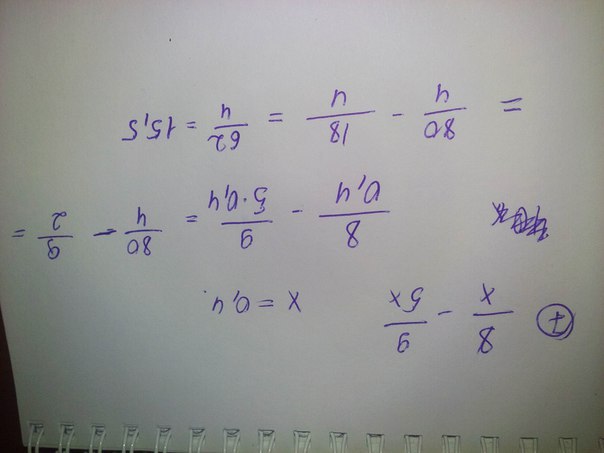 ⑦ 8/x - 9/5x x = 0,4.
8/0,4 - 9/5·0,4 = 80/4 - 9/2 =
= 80/4 - 18/4 = 62/4 = 15,5